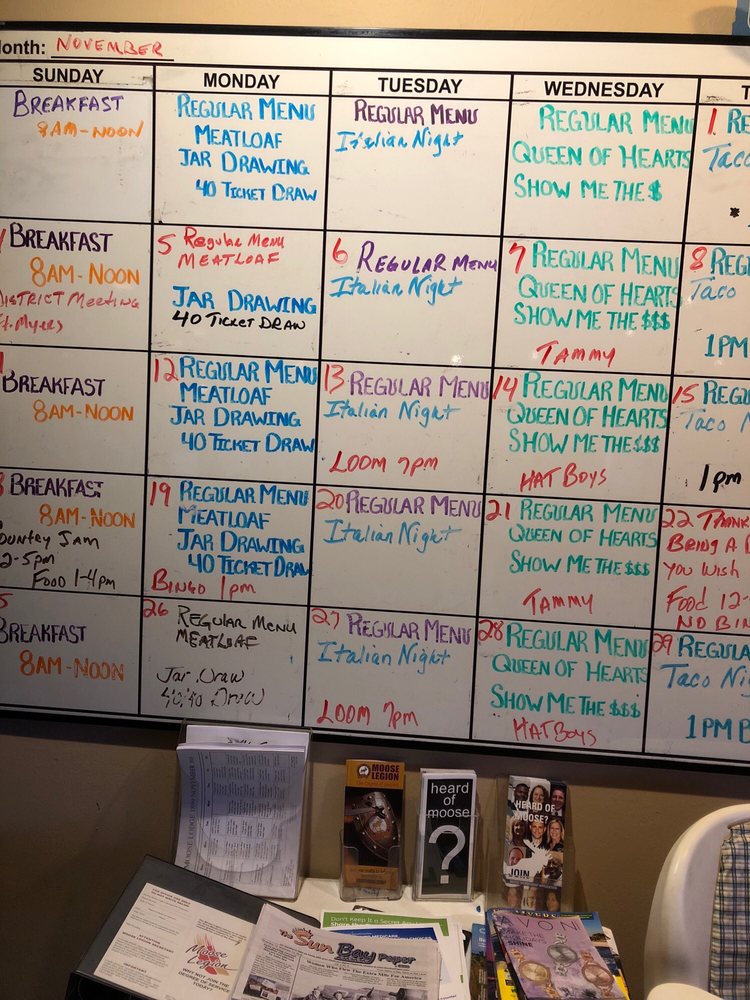 onth: NOVEMBER
SUNDAY
MONDAY
TUESDAY
WEDNESDAY
T
BREAKFAST
8AM-NOON
REGULAR MENU
MEATLOAF
JAR DRAWING
40 TICKET DRAW
REGULAR MENU
Italian Night
REGULAR MENU
QUEEN OF HEARTS
SHOW ME THE $
1 RE
Taco
*
BREAKFAST
8AM-NOON
DISTRICT MEETING
Ft. Myers
5 Regular Menu
MEATLOAF
JAR DRAWING
40 TICKET DRAW
6 REGULAR MENU
Italian Night
7 REGULAR MENU
QUEEN OF HEARTS
SHOW ME THE $$$
TAMMY
8 REGU
Taco
1PM
BREAKFAST
8AM-NOON
12 REGULAR MENU
MEATLOAF
JAR DRAWING
40 TICKET DRAW
13 REGULAR MENU
Italian Night
LOOM 7pm
14 REGULAR MENU
QUEEN OF HEARTS
SHOW ME THE $$$
HAT BOYS
15 REGU
Taco N
1pm
BREAKFAST
8AM-NOON
ountey Jam
2-5pm
Food 1-4pm
19 REGULAR MENU
MEATLOAF
JAR DRAWING
40 TICKET DRAW
BINGO 1pm
20 REGULAR MENU
Italian Night
21 REGULAR MENU
QUEEN OF HEARTS
SHOW ME THE $$$
TAMMY
22 THANK
BRING A
YOU WISH
FOOD 12-
NO BIN
5
BREAKFAST
8AM-NOON
26 REGULAR MENU
MEATLOAF
Jar Draw
40/40 Draw
27 REGULAR MENU
Italian Night
LOOM 7pm
28 REGULAR MENU
QUEEN OF HEARTS
SHOW ME THE $$$
HATBOYS
29 REGULA
Taco Ni
1PM B
MOOSE LEGION
heard
of
moose
?
HEARD OF
MOOSE?
JOIN
Moose
Legion
WHY NOT JOIN THE
DEGREE OF SERVICE
TODAY?
The Sun Bay Paper
Don't Keep it a Secret
AVON
SHINE